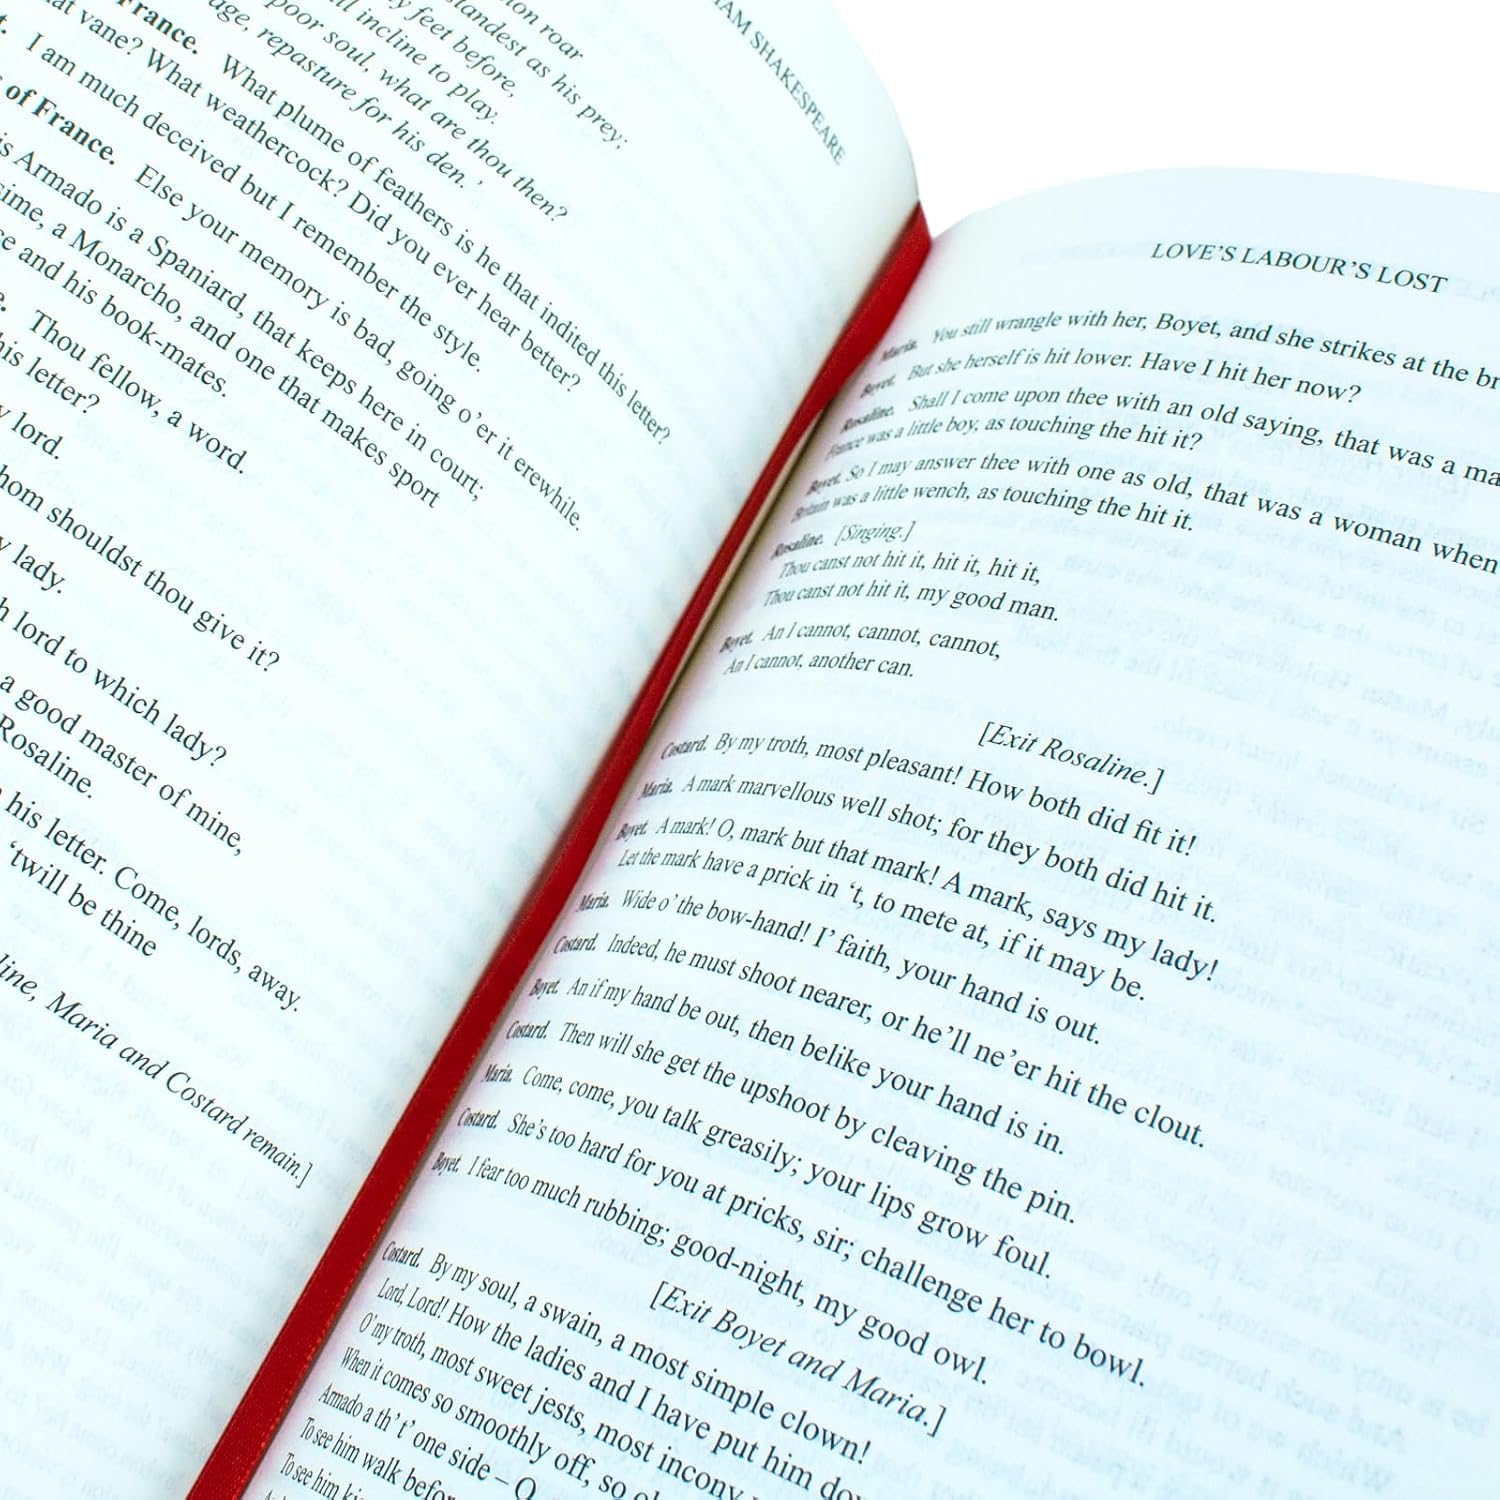 IAM SHAKESPEARE
ion roar
landest as his prey;
y feet before,
ill incline to play.
poor soul, what are thou then?
age, repasture for his den.'
France. What plume of feathers is he that indited this letter?
at vane? What weathercock? Did you ever hear better?
t. I am much deceived but I remember the style.
of France. Else your memory is bad, going o'er it erewhile.
is Armado is a Spaniard, that keeps here in court;
sime, a Monarcho, and one that makes sport
ce and his book-mates.
e. Thou fellow, a word.
his letter?
y lord.
hom shouldst thou give it?
y lady.
h lord to which lady?
a good master of mine,
Rosaline.
his letter. Come, lords, away.
'twill be thine
line, Maria and Costard remain.]
LOVE'S LABOUR'S LOST
Maria. You still wrangle with her, Boyet, and she strikes at the br
Boyet. But she herself is hit lower. Have I hit her now?
Rosaline. Shall I come upon thee with an old saying, that was a ma
France was a little boy, as touching the hit it?
Boyet. So I may answer thee with one as old, that was a woman when
Britain was a little wench, as touching the hit it.
Rosaline. [Singing.]
Thou canst not hit it, hit it, hit it,
Thou canst not hit it, my good man.
Boyet. An I cannot, cannot, cannot,
An I cannot, another can.
[Exit Rosaline.]
Costard. By my troth, most pleasant! How both did fit it!
Maria. A mark marvellous well shot; for they both did hit it.
Boyet. A mark! O, mark but that mark! A mark, says my lady!
Let the mark have a prick in 't, to mete at, if it may be.
Maria. Wide o' the bow-hand! I' faith, your hand is out.
Costard. Indeed, he must shoot nearer, or he'll ne'er hit the clout.
Boyet. An if my hand be out, then belike your hand is in.
Costard. Then will she get the upshoot by cleaving the pin.
Maria. Come, come, you talk greasily; your lips grow foul.
Costard. She's too hard for you at pricks, sir; challenge her to bowl.
Boyet. I fear too much rubbing; good-night, my good owl.
[Exit Boyet and Maria.]
Costard. By my soul, a swain, a most simple clown!
Lord, Lord! How the ladies and I have put him dow
O' my troth, most sweet jests, most incony
When it comes so smoothly off, so ob
Armado a th' t' one side – O,
To see him walk befor
To see him ki